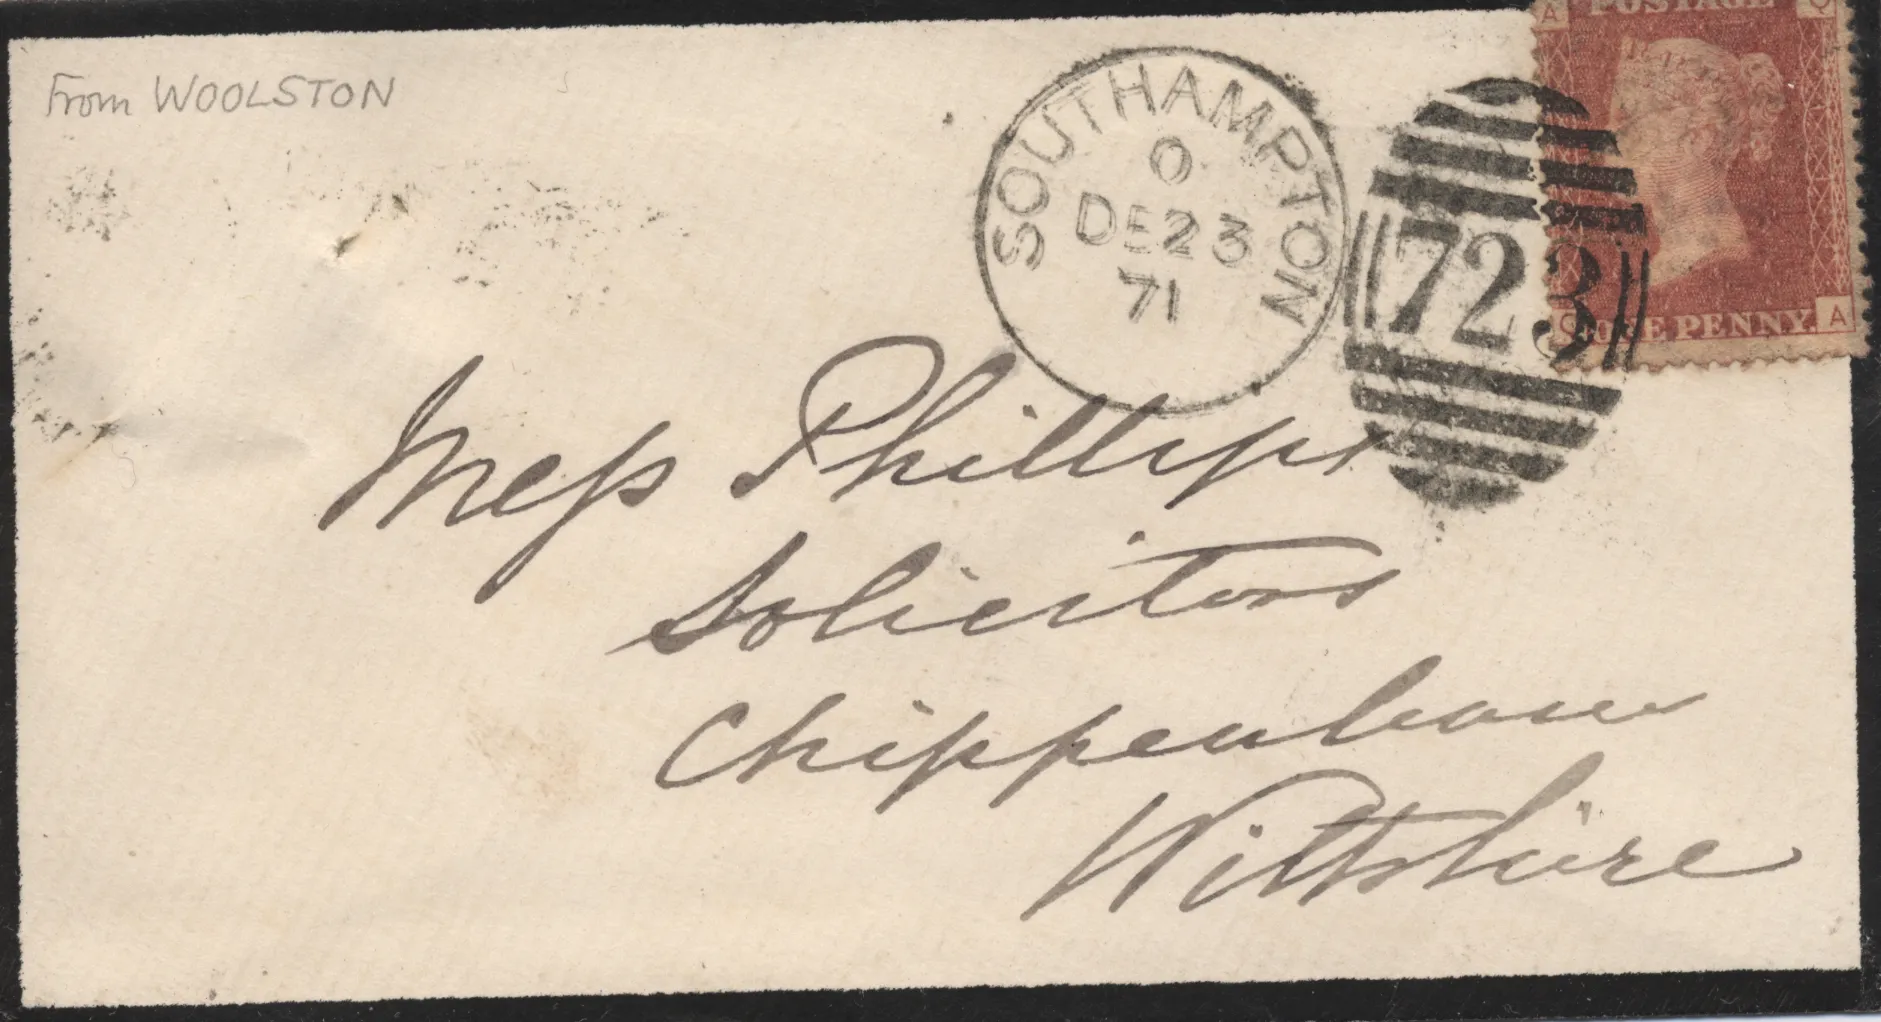 From WOOLSTON
SOUTHAMPTON
O
DE 23
71
723
A POSTAGE Q
Q ONE PENNY. A
Mess Phillips
Solicitors
Chippenham
Wiltshire